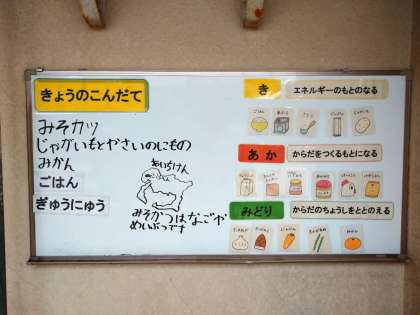 きょうのこんだて
みそカツ
じゃがいもとやさいのにもの
みかん
ごはん
ぎゅうにゅう
あいちけん
みそかつはなごや
めいぶつです
き
エネルギーのもとのなる
ごはん
あか
からだをつくるもとになる
みどり
からだのちょうしをととのえる
にんじん
みかん